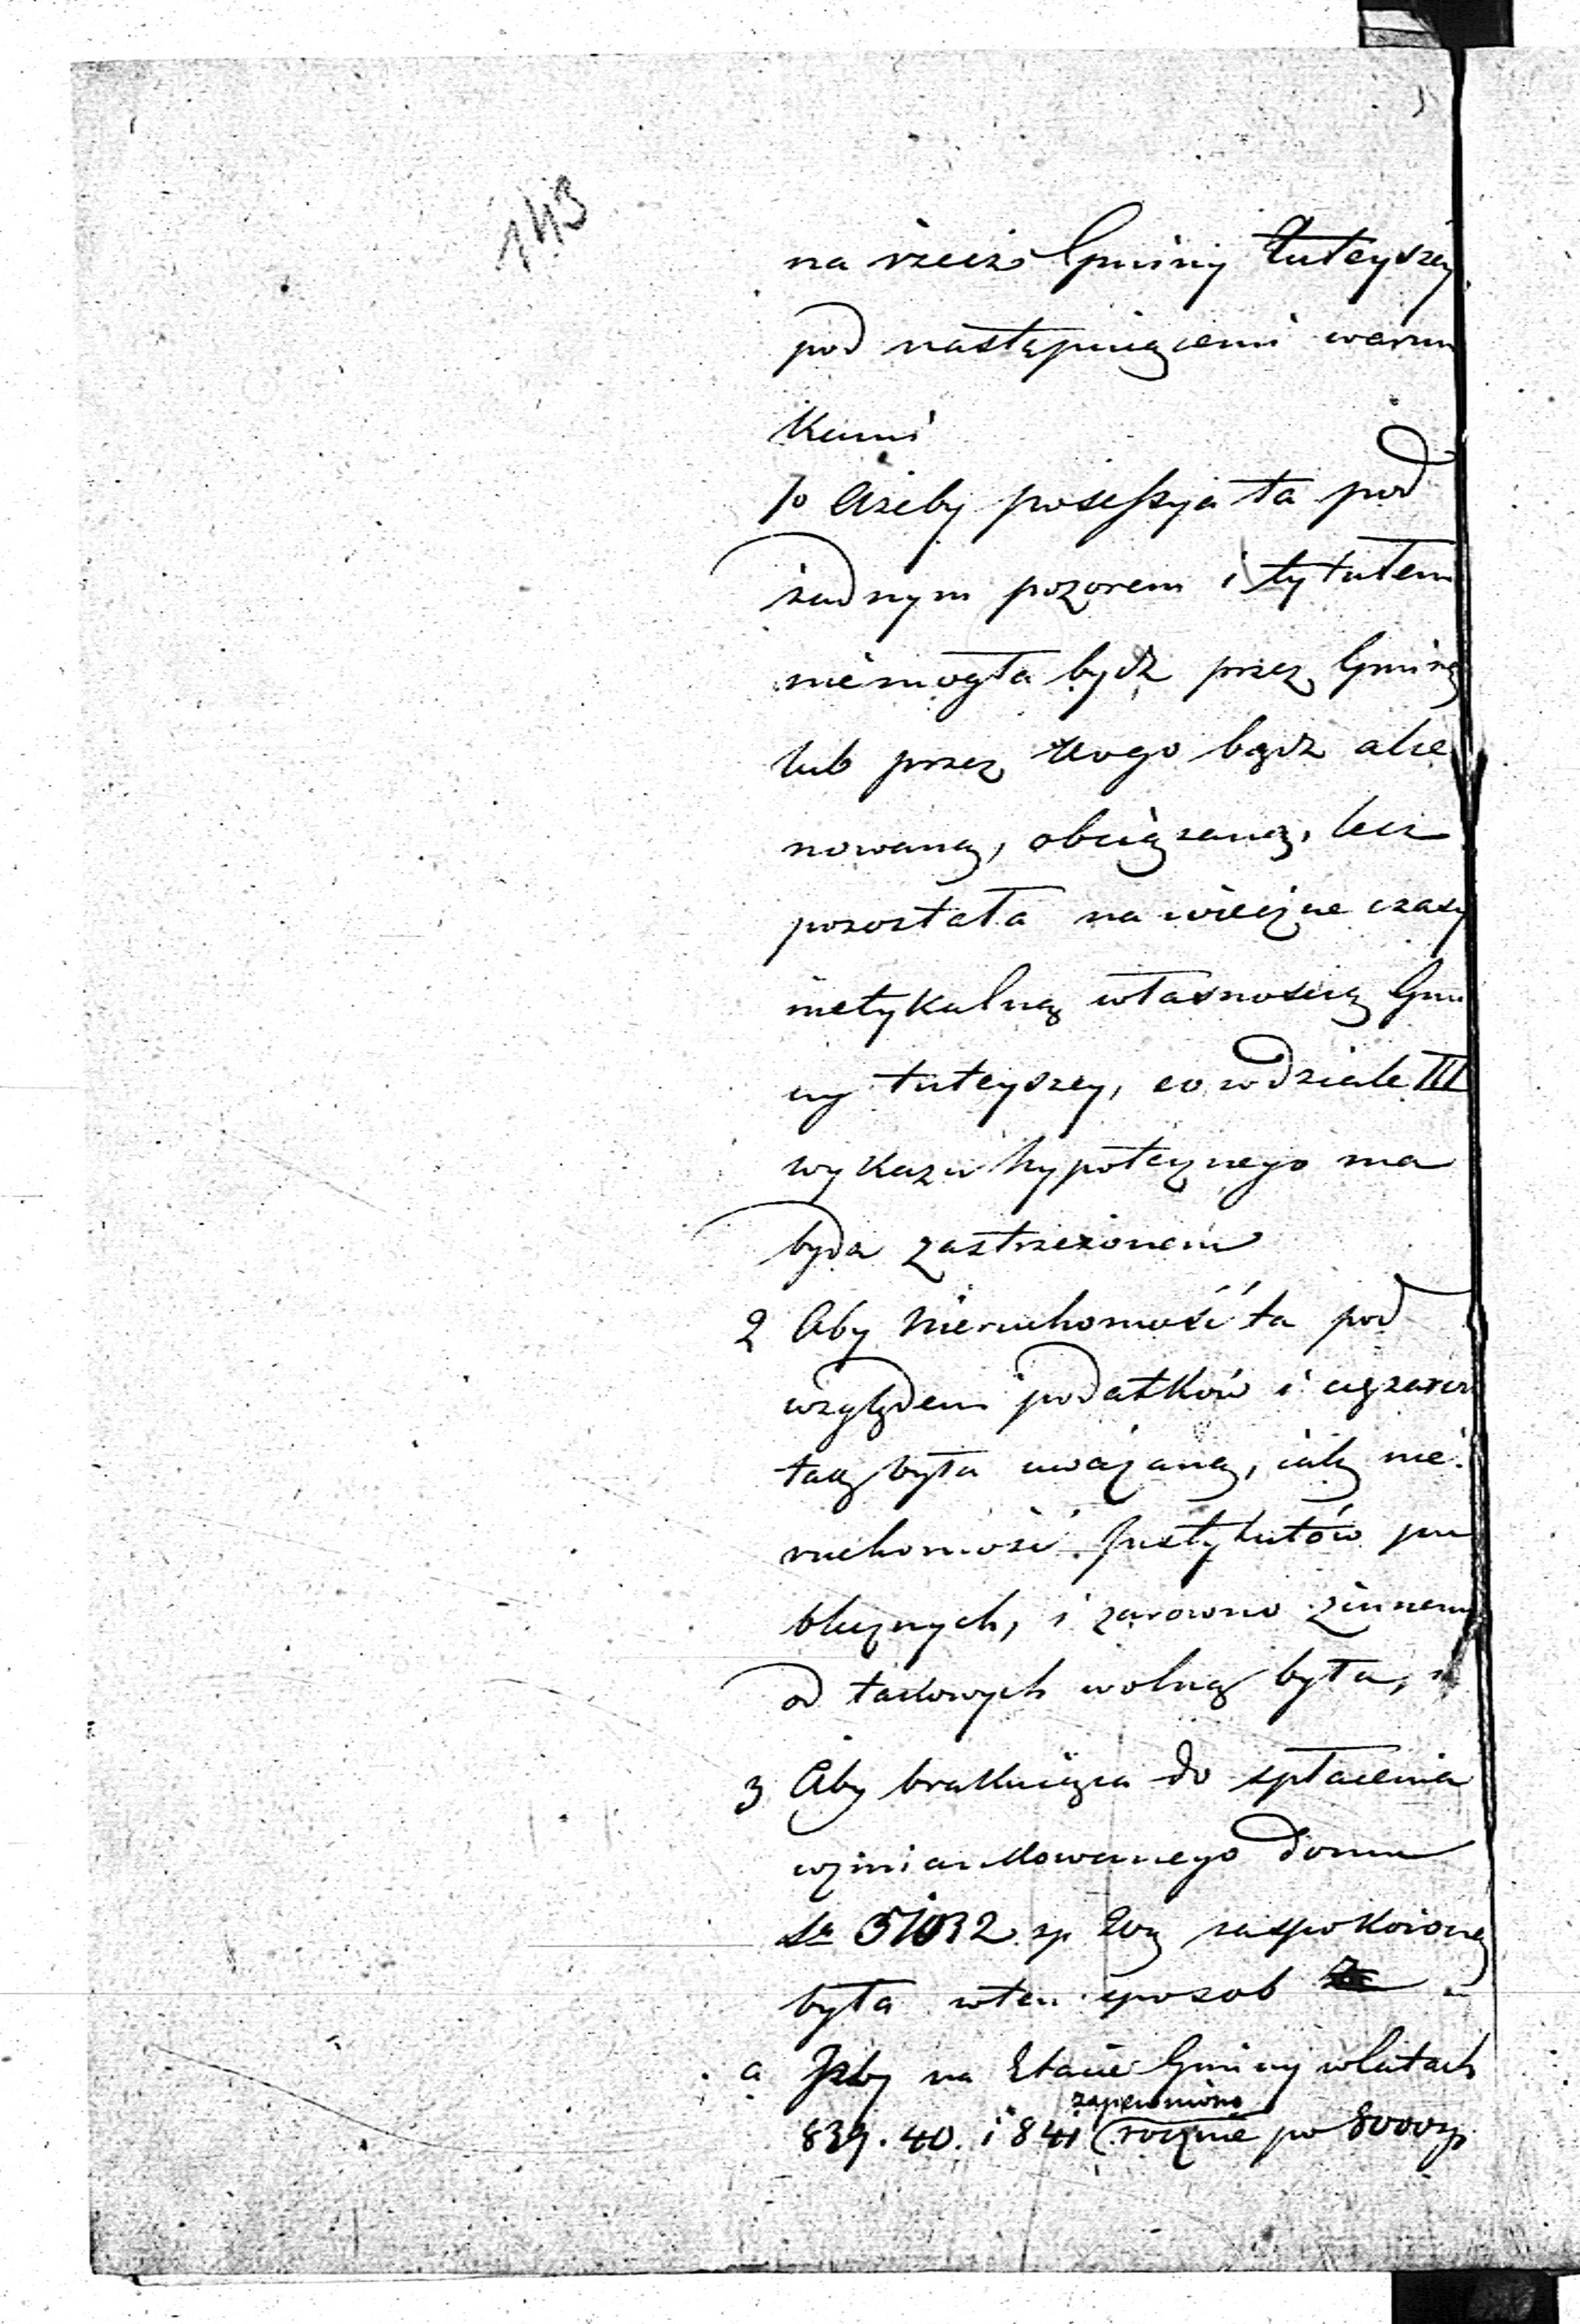 143
na rzecz Gminy tuteyszey
pod następuiącemi warun
kami
1o Ażeby possessya ta pod
żadnym pozorem i tytułem
niemogła bydź przez Gminę
lub przez kogo bądz alie
nowaną, obciążaną, lecz
pozostała na wieczne czasy
nietykalną własnością Gmi
ny tuteyszey, co w dziale III
wykazu hypotecznego ma
bydz zastrzeżonem
2 Aby Nieruchomość ta pod
względem podatków i ciężarów
tak była uważaną, iak nie
ruchomość Instytutów pu
blicznych, i zarowno zinnemi
od takowych wolną była, i
3 Aby brakuiąca do spłacenia
wzmiankowanego domu
Sa 51032 zp zaspokoioną
była w ten sposob
a Iżby na Etacie Gminy w latach
zapewniono
839. 40. i 841 rocznie po 8000 zp